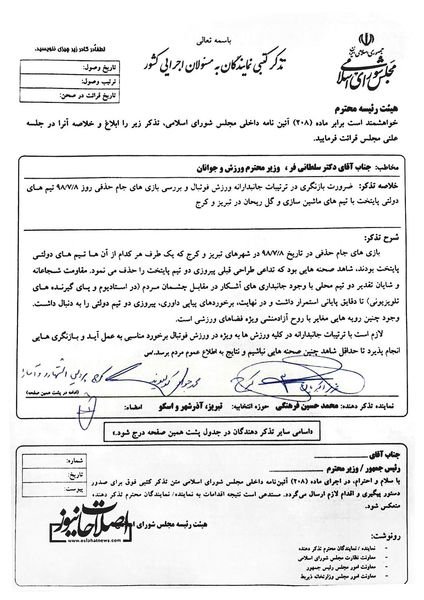 باسمه تعالی
تذکر کتبی نمایندگان به مسئولان اجرایی کشور
جمهوری اسلامی ایران
مجلس شورای اسلامی
لطفاً در کادر زیر چیزی ننویسید.
تاریخ وصول:
ترتیب وصول:
تاریخ قرائت در صحن:
هیئت رئیسه محترم
خواهشمند است برابر ماده (۲۰۸) آئین نامه داخلی مجلس شورای اسلامی، تذکر زیر را ابلاغ و خلاصه آنرا در جلسه
علنی مجلس قرائت فرمایید.
مخاطب: جناب آقای دکتر سلطانی فر، وزیر محترم ورزش و جوانان
خلاصه تذکر: ضرورت بازنگری در ترتیبات جانبدارانه ورزش فوتبال و بررسی بازی های جام حذفی روز ۹۸/۷/۸ تیم های
دولتی پایتخت با تیم های ماشین سازی و گل ریحان در تبریز و کرج
شرح تذکر:
بازی های جام حذفی در تاریخ ۹۸/۷/۸ در شهرهای تبریز و کرج که یک طرف هر کدام از آن ها تیم های دولتی
پایتخت بودند، شاهد صحنه هایی بود که تداعی طراحی قبلی پیروزی دو تیم پایتخت را حذف می نمود. مقاومت شجاعانه
و شایان تقدیر دو تیم محلی با وجود جانبداری های آشکار در مقابل چشمان مردم (در استادیوم و پای گیرنده های
تلویزیونی) تا دقایق پایانی استمرار داشت و در نهایت، برخوردهای پیاپی داوری، پیروزی دو تیم دولتی را به دنبال داشت.
وجود چنین رویه هایی مغایر با روح آزادمنشی ویژه فضاهای ورزشی است.
لازم است با ترتیبات جانبدارانه در کلیه ورزش ها به ویژه در ورزش فوتبال برخورد مناسبی به عمل آید و بازنگری هایی
انجام پذیرد تا حداقل شاهد چنین صحنه هایی نباشیم و نتایج به اطلاع عموم مردم برسد./س
(ادامه در پشت همین صفحه)
نماینده تذکر دهنده: محمد حسین فرهنگی حوزه انتخابیه: تبریز، آذرشهر و اسکو امضاء:
«اسامی سایر تذکر دهندگان در جدول پشت همین صفحه درج شود.»
جناب آقای
رئیس جمهور / وزیر محترم
شماره:
تاریخ:
پیوست:
با سلام و احترام، در اجرای ماده (۲۰۸) آئین‌نامه داخلی مجلس شورای اسلامی متن تذکر کتبی فوق برای صدور
دستور پیگیری و اقدام لازم ارسال می‌گردد. مستدعی است نتیجه اقدامات به نماینده / نمایندگان محترم تذکر دهنده،
منعکس شود.
هیئت رئیسه مجلس شورای
اصلاحات نیوز
www.eslahatnews.com
رونوشت:
- نماینده / نمایندگان محترم تذکر دهنده
- معاونت نظارت مجلس شورای اسلامی
- معاونت امور مجلس رئیس جمهور
- معاونت امور مجلس وزارتخانه ذیربط